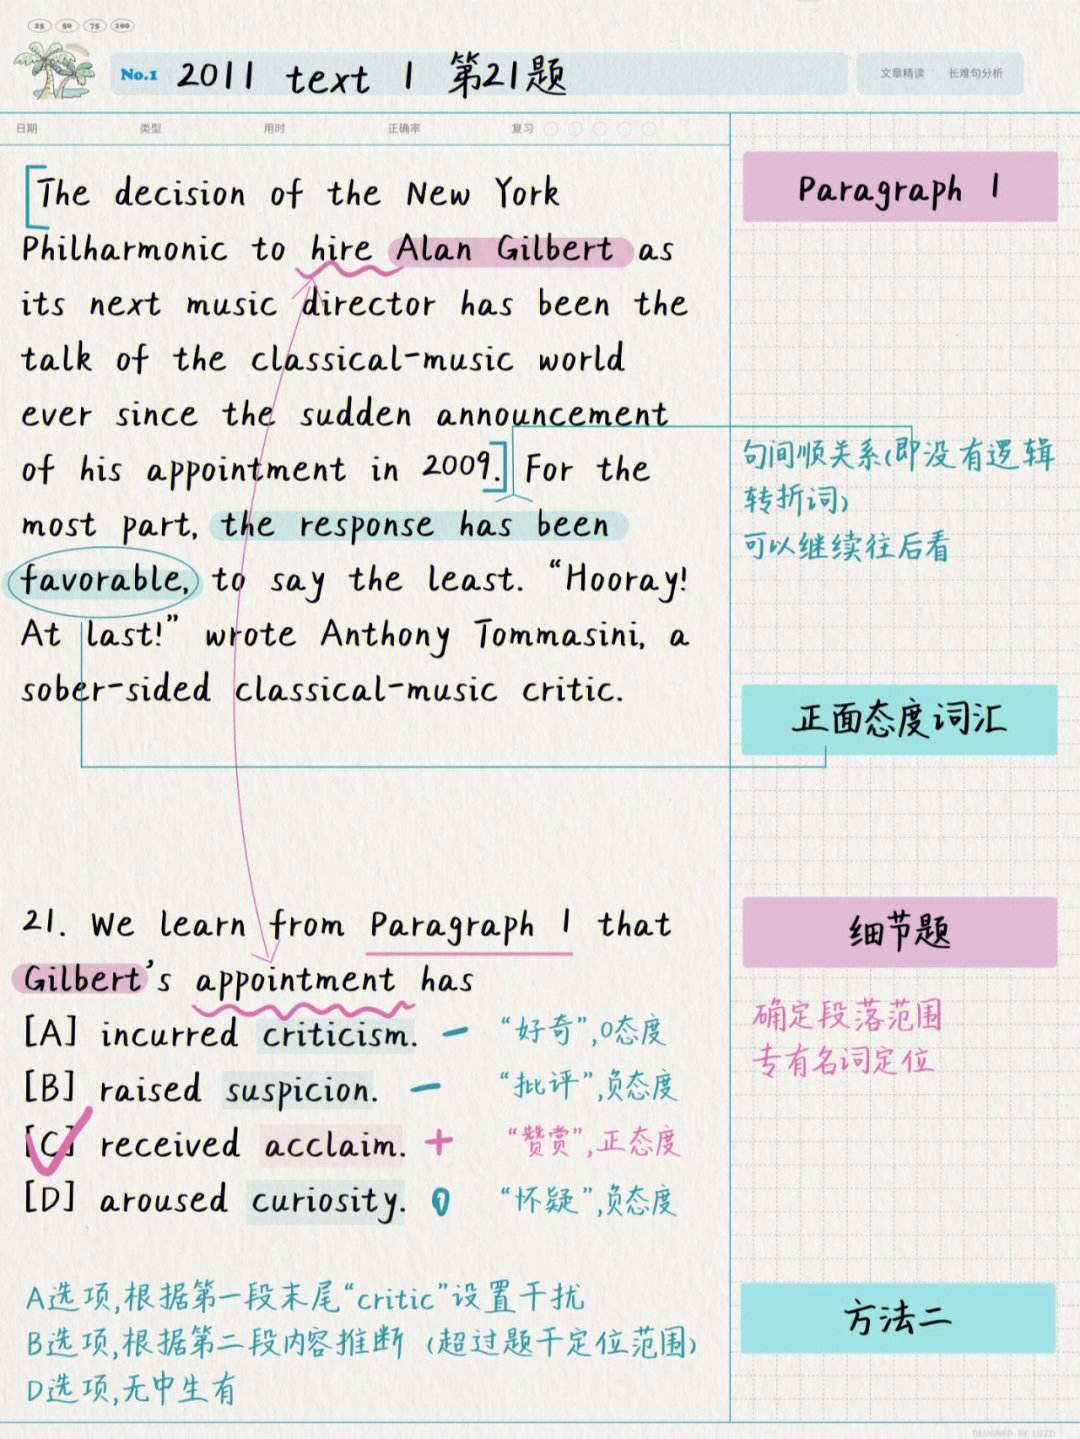 25 50 75 100
No.1 2011 text 1 第21题
文章精读 长难句分析
日期 类型 用时 正确率 复习
The decision of the New York
Philharmonic to hire Alan Gilbert as
its next music director has been the
talk of the classical-music world
ever since the sudden announcement
of his appointment in 2009. For the
most part, the response has been
favorable, to say the least. “Hooray!
At last!” wrote Anthony Tommasini, a
sober-sided classical-music critic.
Paragraph 1
句间顺关系(即没有逻辑
转折词)
可以继续往后看
正面态度词汇
21. We learn from Paragraph 1 that
Gilbert's appointment has
[A] incurred criticism. - “好奇”,0态度
[B] raised suspicion. - “批评”,负态度
[C] received acclaim. + “赞赏”,正态度
[D] aroused curiosity. 0 “怀疑”,负态度
细节题
确定段落范围
专有名词定位
A选项,根据第一段末尾“critic”设置干扰
B选项,根据第二段内容推断 (超过题干定位范围)
D选项,无中生有
方法二
DESIGNED BY LIZZI